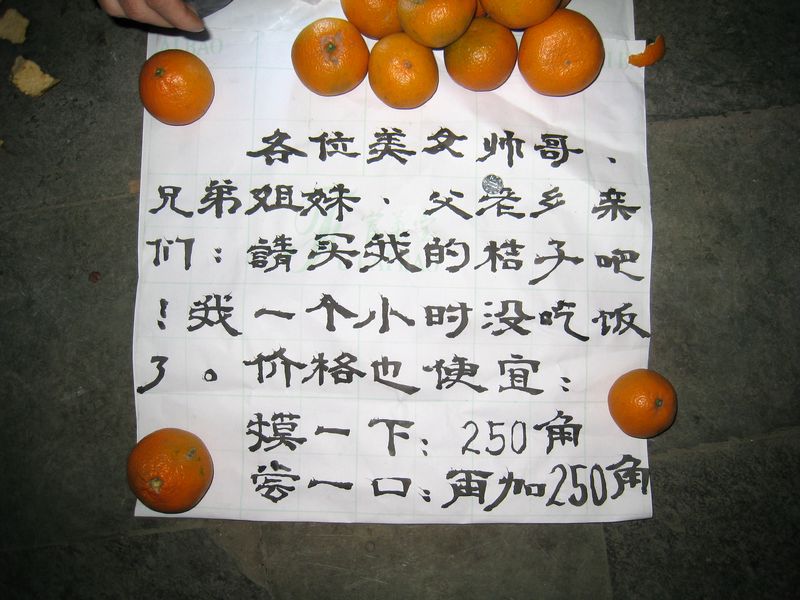 各位美女帅哥、
兄弟姐妹、父老乡亲
们：請买我的桔子吧
！我一个小时没吃饭
了。价格也便宜：
摸一下：250角
尝一口：再加250角